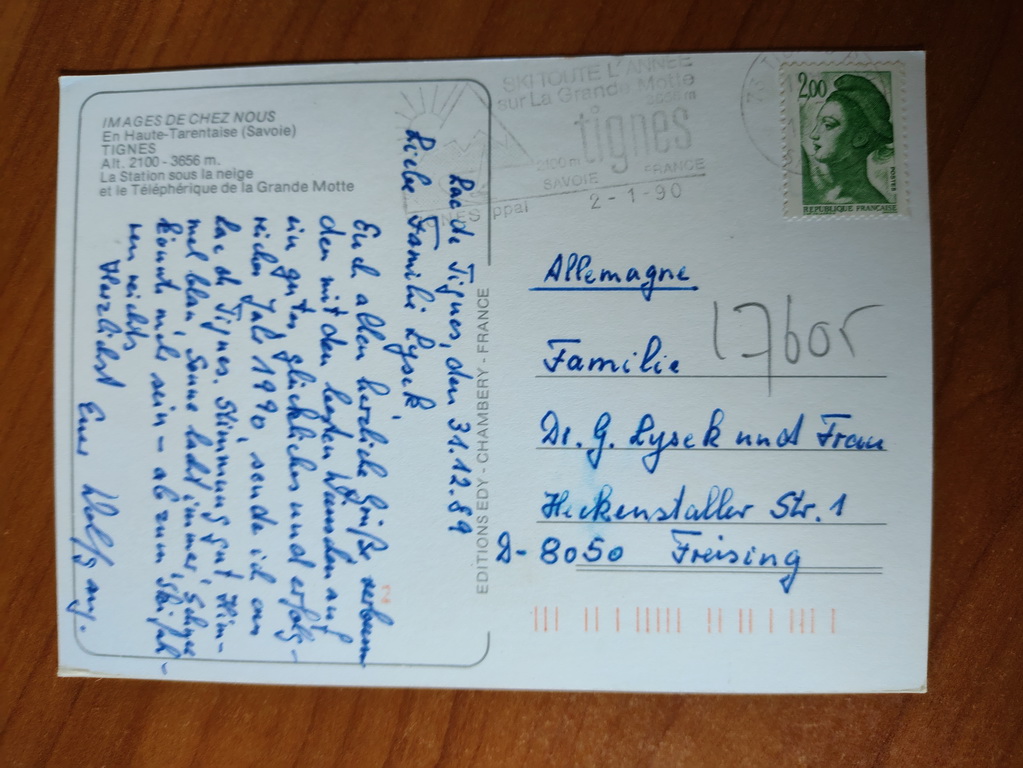 IMAGES DE CHEZ NOUS
En Haute-Tarentaise (Savoie)
TIGNES
Alt. 2100 - 3656 m.
La Station sous la neige
et le Téléphérique de la Grande Motte
Lac de Tignes, den 31.12.89
Liebe Familie Lysek,
Euch allen herzliche Grüße verbun
den mit den besten Wünschen auf
ein gutes, glückliches und erfolg-
reiches Jahr 1990, sende ich aus
Lac de Tignes. Stimmung gut, Him-
mel blau, Sonne lacht immer, Schnee
könnt' mehr sein - ab zum Skifah-
ren reichts
Herzlichst Euer Wolfgang.
EDITIONS EDY - CHAMBERY - FRANCE
SKI TOUTE L'ANNÉE
sur La Grande Motte
3656 m
tignes
2100 m
SAVOIE FRANCE
2-1-90
NES ppal
2,00
POSTES
REPUBLIQUE FRANCAISE
Allemagne
17605
Familie
Dr. G. Lysek und Frau
Heckenstaller Str. 1
D-8050 Freising